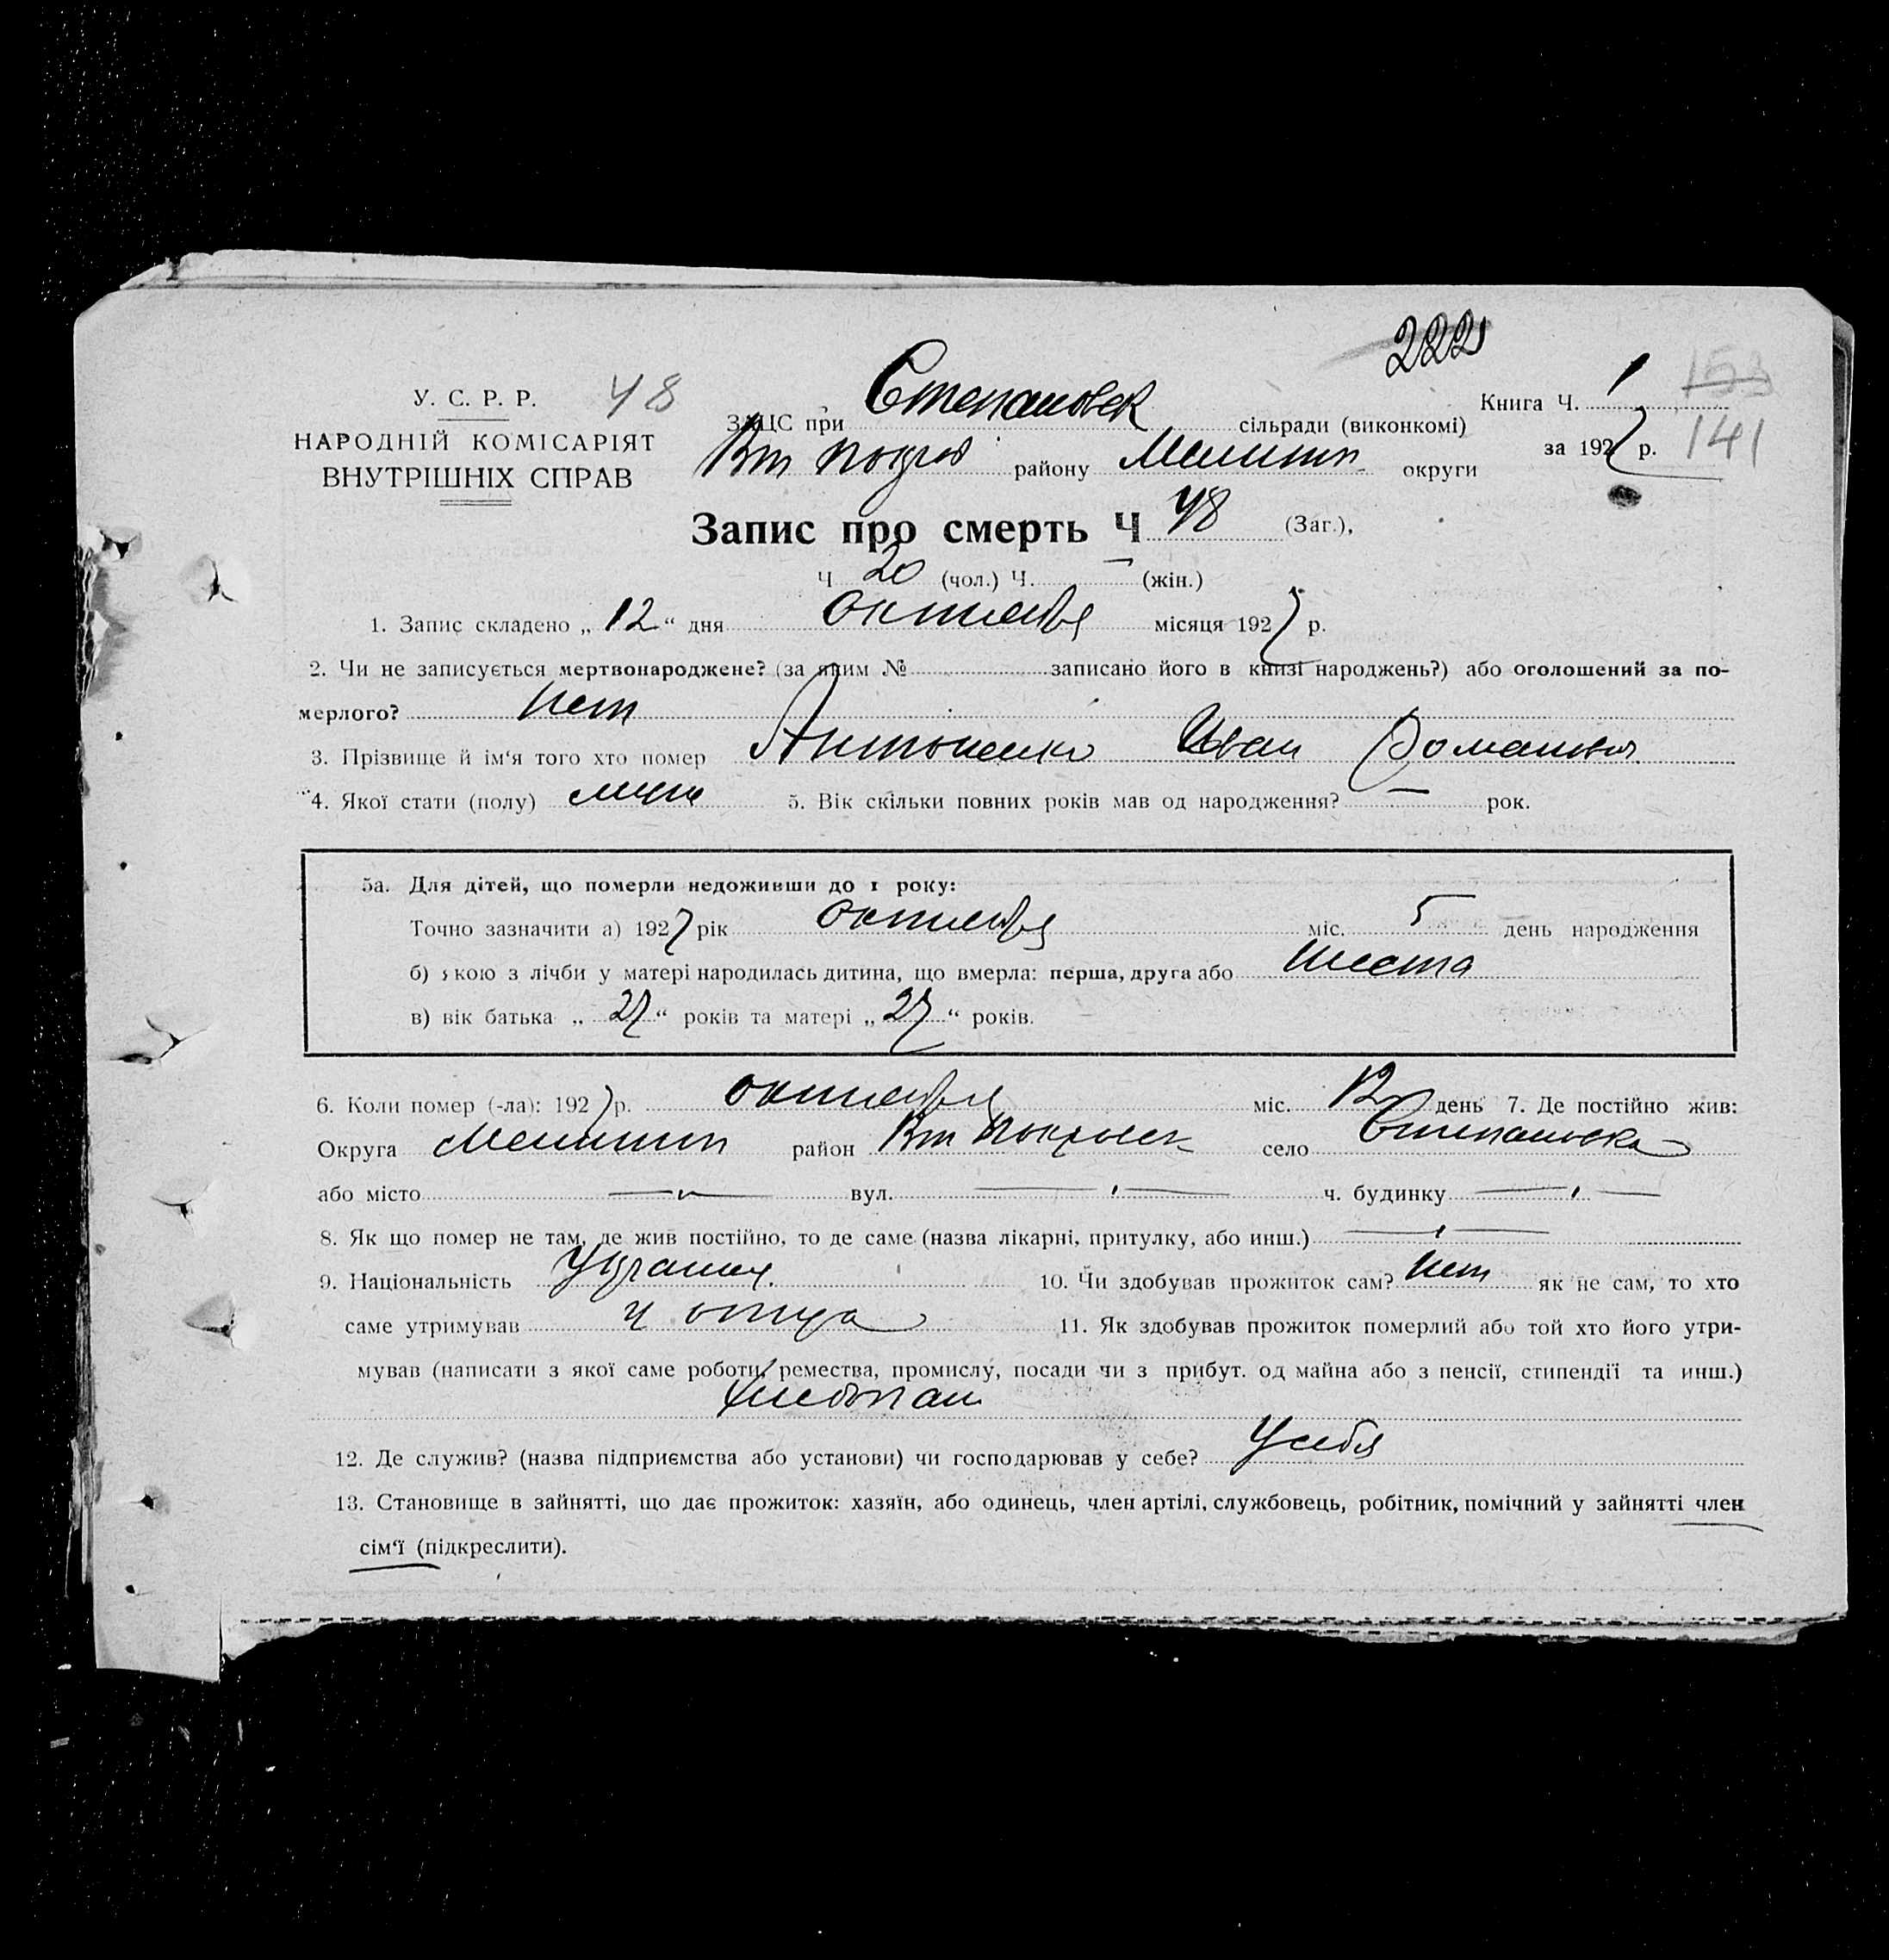 222
У. С. Р. Р. 48 ЗАЦС при Степановск сільради (виконкомі) Книга Ч. 1 153
НАРОДНІЙ КОМІСАРІЯТ Вт Покров району Мелитоп округи за 1927 р. 141
ВНУТРІШНІХ СПРАВ
Запис про смерть Ч 48 (Заг.),
Ч 20 (чол.) Ч. — (жін.)
1. Запис складено „ 12 “ дня октября місяця 1927 р.
2. Чи не записується мертвонароджене? (за яким № записано його в книзі народжень?) або оголошений за по-
мерлого? нет
3. Прізвище й ім‘я того хто помер Антоненко Иван Романович
4. Якої стати (полу) муж 5. Вік скільки повних років мав од народження? — рок.
5а. Для дітей, що померли недоживши до 1 року:
Точно зазначити а) 1927 рік октября міс. 5 день народження
б) якою з лічби у матері народилась дитина, що вмерла: перша, друга або шеста
в) вік батька „ 27 “ років та матері „ 27 “ років.
6. Коли помер (-ла): 1927 р. октября міс. 12 день 7. Де постійно жив:
Округа Мелитоп район Вт Покровск село Степановка
або місто —„— вул. —„— ч. будинку —„—
8. Як що помер не там, де жив постійно, то де саме (назва лікарні, притулку, або инш.) —„—
9. Національність Украинец 10. Чи здобував прожиток сам? нет як не сам, то хто
саме утримував у отца 11. Як здобував прожиток померлий або той хто його утри-
мував (написати з якої саме роботи, ремества, промислу, посади чи з прибут. од майна або з пенсії, стипендії та инш.)
хлебопаш
12. Де служив? (назва підприємства або установи) чи господарював у себе? У себя
13. Становище в зайнятті, що дає прожиток: хазяїн, або одинець, член артілі, службовець, робітник, помічний у зайнятті член
сім‘ї (підкреслити).